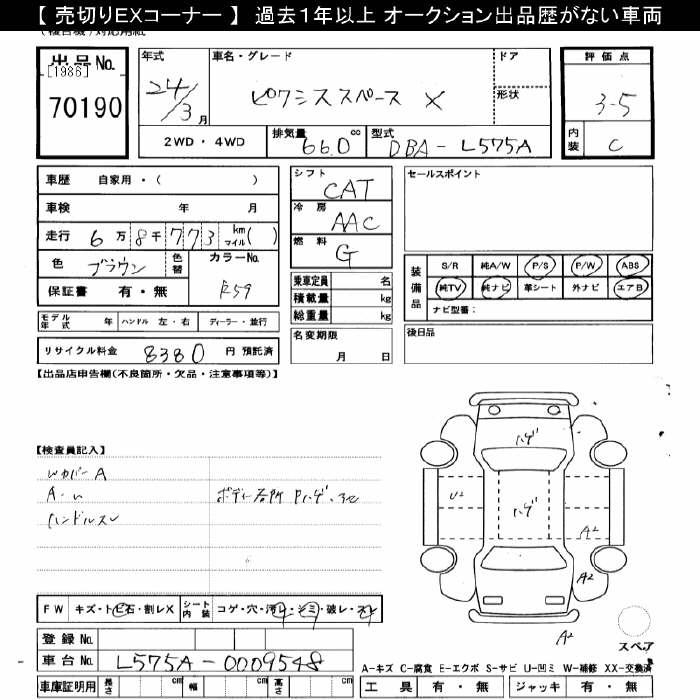 【 売切りEXコーナー 】 過去1年以上 オークション出品歴がない車両
出品No.
[1986]
70190
年式
24/3月
車名・グレード
ピクシススペース X
ドア
形状
2WD・4WD
排気量 660 cc
型式 DBA-L575A
評価点
3.5
内装 C
車歴 自家用・( )
車検 年 月
走行 6万8千773 km マイル( )
色 ブラウン
色替
カラーNo.
R59
保証書 有・無
シフト CAT
冷房 AAC
燃料 G
乗車定員 名
積載量 kg
総重量 kg
名変期限
月 日
セールスポイント
装備品
S/R 純A/W P/S P/W ABS
純TV 純ナビ 革シート 外ナビ エアB
ナビ型番:
後日品
モデル年式 年 ハンドル 左・右 ディーラー・並行
リサイクル料金 8380 円 預託済
【出品店申告欄(不良箇所・欠品・注意事項等)】
【検査員記入】
Wカバー A
ハンドルスレ
ボディー各所 Pハゲ、
ハゲ
ハゲ
U2
A2
A2
A2
スペア
FW キズ・トビ石・割レX
シート内装 コゲ・穴・汚レ・シミ・破レ・スレ
登録No.
車台No. L575A-0009548
車庫証明用 長さ cm 幅 cm 高さ cm
A-キズ C-腐食 E-エクボ S-サビ U-凹ミ W-補修 XX-交換済
工具 有・無 ジャッキ 有・無